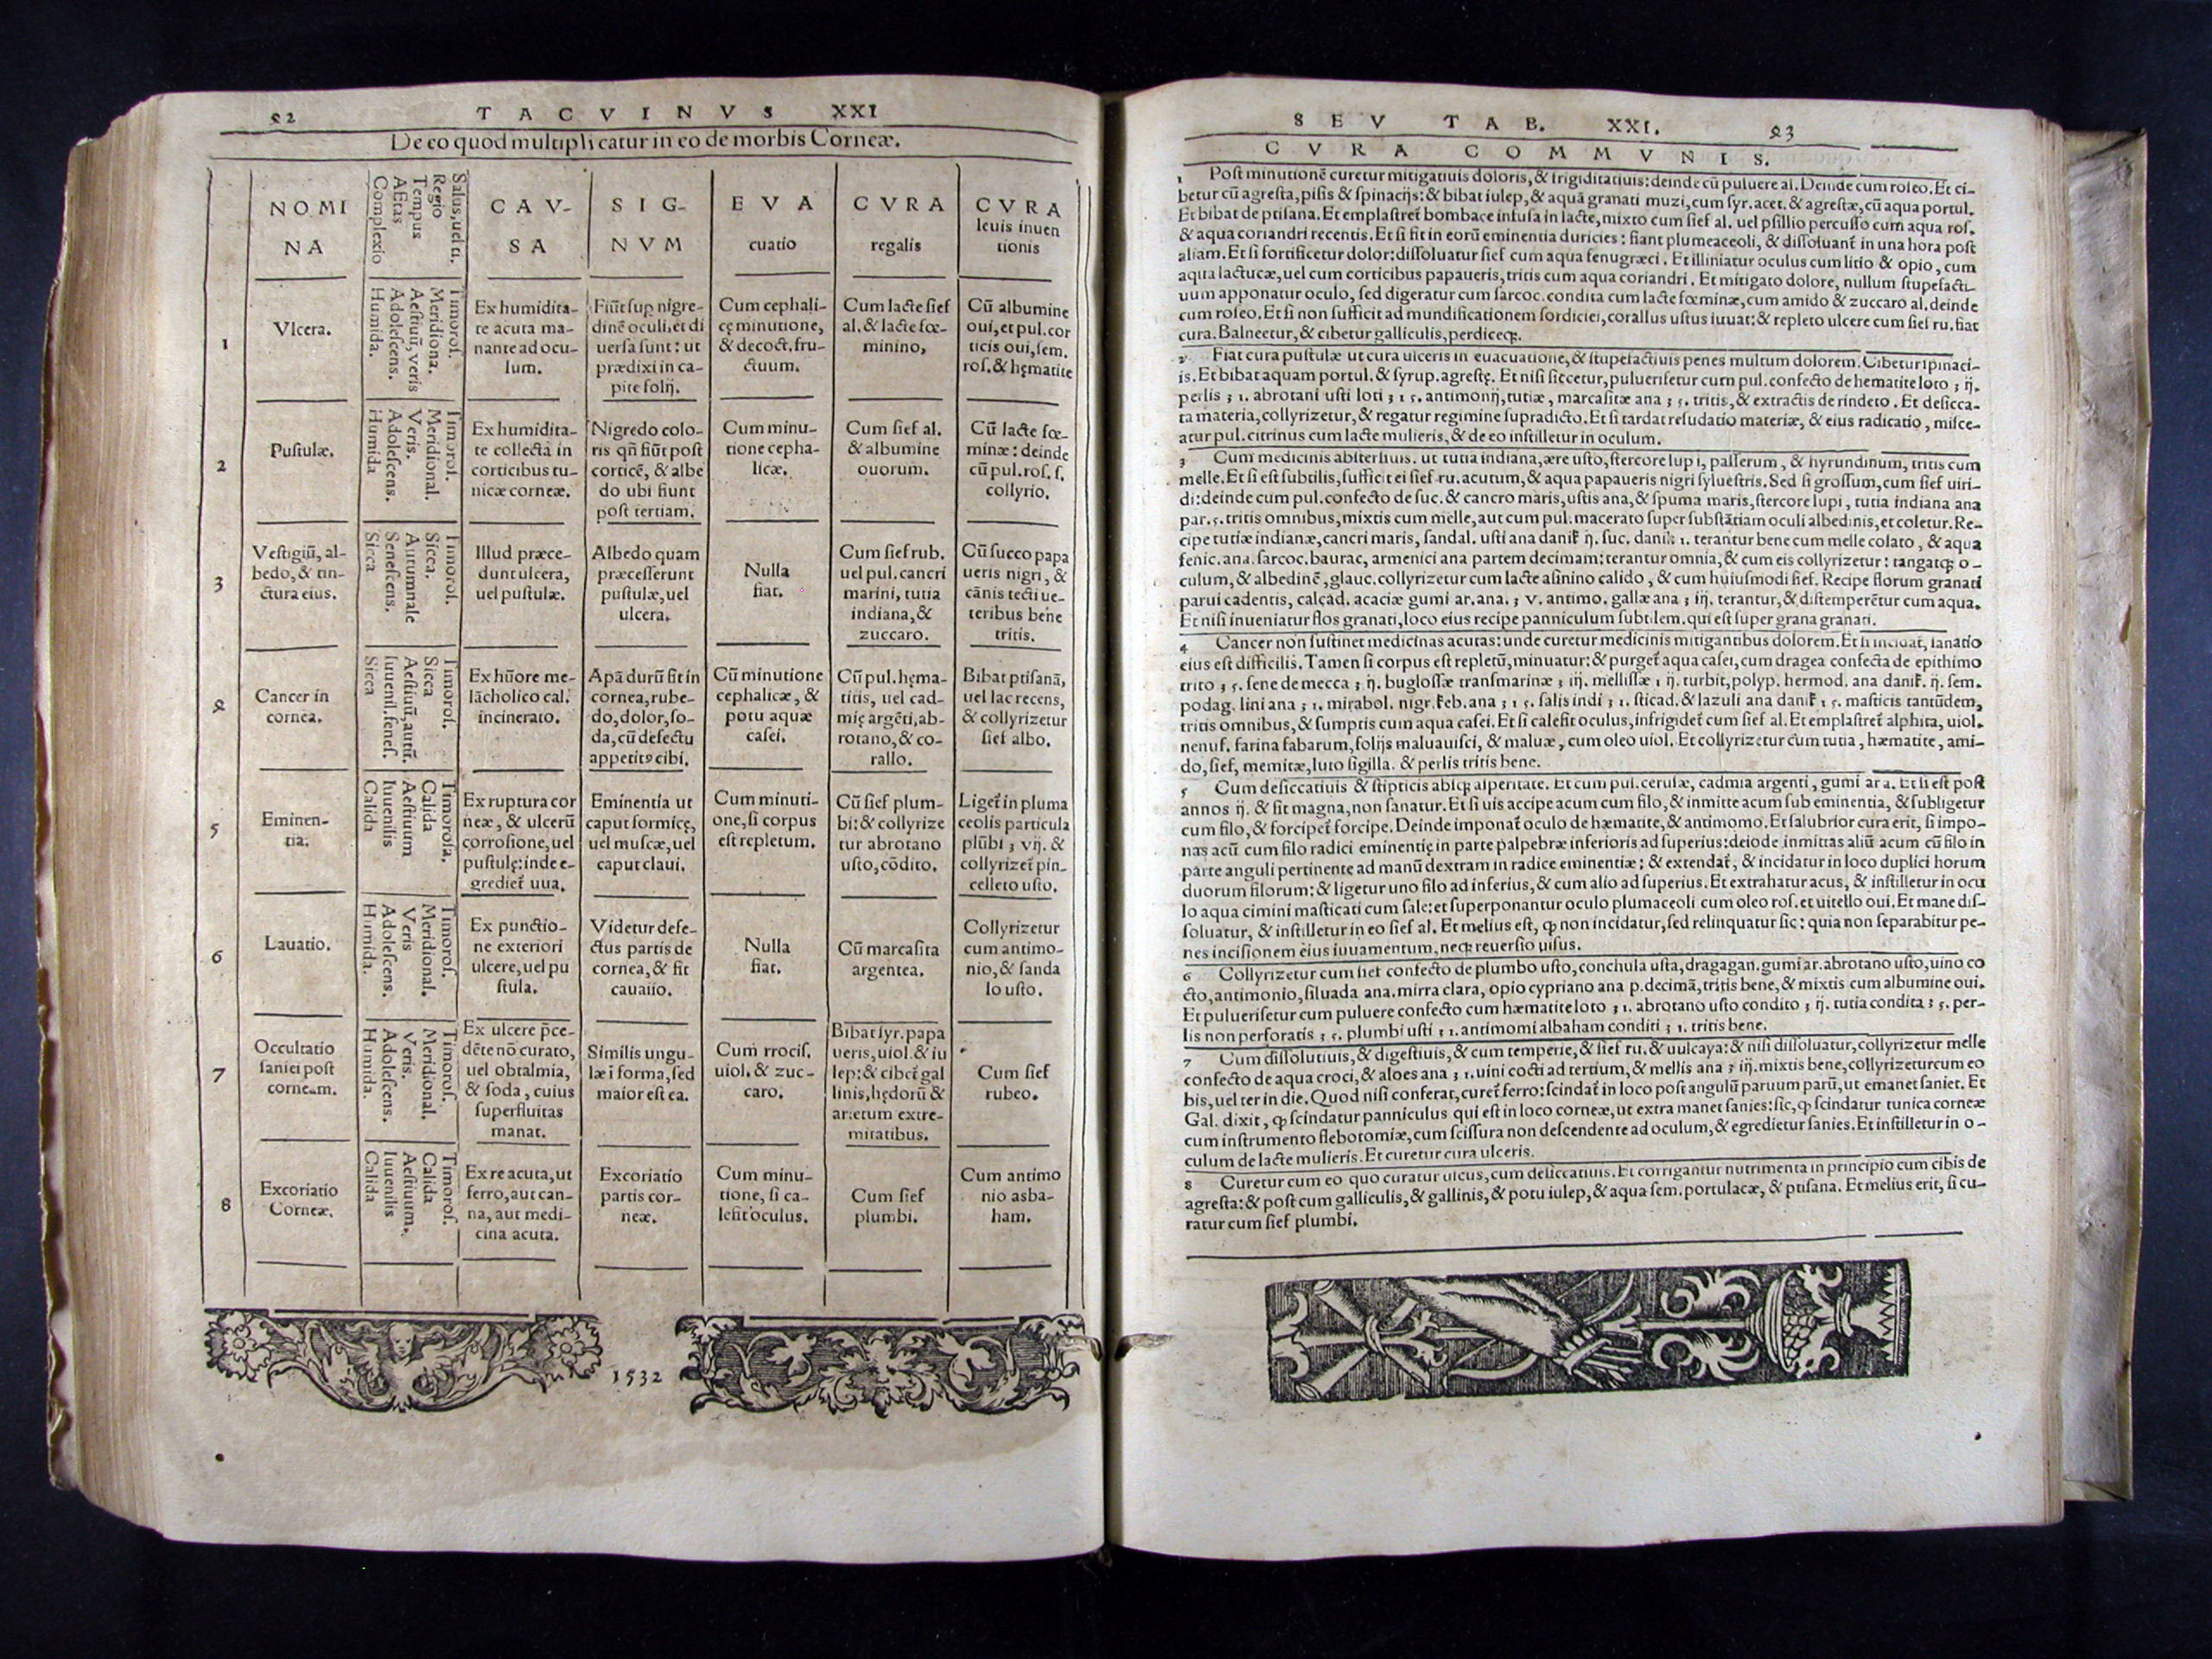 42 TACVINVS XXI
De eo quod multiplicatur in eo de morbis Corneæ.
NOMI
NA
Salus, uel ti.
Regio
Tempus
AEtas
Complexio
CAV-
SA
SIG-
NVM
EVA
cuatio
CVRA
regalis
CVRA
leuis inuen
tionis
1
Vlcera.
Timorof.
Meridiona.
Aestiuũ, veris
Adolescens.
Humida.
Ex humidita-
te acuta ma-
nante ad ocu-
lum.
Fiũt sup nigre-
dinẽ oculi, et di
uersa sunt: ut
prædixi in ca-
pite solij.
Cum cephali-
cę minutione,
& decoct. fru-
ctuum.
Cum lacte sief
al. & lacte fœ-
minino,
Cũ albumine
oui, et pul. cor
ticis oui, sem.
ros. & hęmatite
2
Pustulæ.
Timorof.
Meridional.
Veris.
Adolescens.
Humida
Ex humidita-
te collecta in
corticibus tu-
nicæ corneæ.
Nigredo colo-
ris qñ fiũt post
corticẽ, & albe
do ubi fiunt
post tertiam.
Cum minu-
tione cepha-
licæ.
Cum sief al.
& albumine
ouorum.
Cũ lacte fœ-
minæ: deinde
cũ pul. ros. s.
collyrio.
3
Vestigiũ, al-
bedo, & tin-
ctura eius.
Timorof.
Sicca.
Autumnale
Senescens.
Sicca
Illud præce-
dunt ulcera,
uel pustulæ.
Albedo quam
præcesserunt
pustulæ, uel
ulcera.
Nulla
fiat.
Cum sief rub.
uel pul. cancri
marini, tutia
indiana, &
zuccaro.
Cũ succo papa
ueris nigri, &
cãnis tecti ue-
teribus bene
tritis.
4
Cancer in
cornea.
Timorof.
Sicca
Aestiuũ, autũ.
Iuuenil. senes.
Sicca
Ex hũore me-
lãcholico cal.
incinerato.
Apã durũ fit in
cornea, rube-
do, dolor, so-
da, cũ defectu
appetitꝰ cibi.
Cũ minutione
cephalicæ, &
potu aquæ
casei.
Cũ pul. hęma-
titis, uel cad-
mię argẽti, ab-
rotano, & co-
rallo.
Bibat ptisanã,
uel lac recens,
& collyrizetur
sief albo.
5
Eminen-
tia.
Timorosa.
Calida
Aestiuum
Iuuenilis
Calida
Ex ruptura cor
neæ, & ulcerũ
corrosione, uel
pustulę: inde e-
grediet̃ uua.
Eminentia ut
caput formicę,
uel muscæ, uel
caput claui.
Cum minuti-
one, si corpus
est repletum.
Cũ sief plum-
bi: & collyrize
tur abrotano
usto, cõdito.
Liget̃ in pluma
ceolis particula
plũbi ʒ vij. &
collyrizet̃ pin-
celleto usto.
6
Lauatio.
Timorof.
Meridional.
Veris
Adolescens.
Humida.
Ex punctio-
ne exteriori
ulcere, uel pu
stula.
Videtur defe-
ctus partis de
cornea, & fit
cauatio.
Nulla
fiat.
Cũ marcasita
argentea.
Collyrizetur
cum antimo-
nio, & sanda
lo usto.
7
Occultatio
saniei post
corneam.
Timorof.
Meridional.
Veris.
Adolescens.
Humida.
Ex ulcere p̃ce-
dẽte nõ curato,
uel obtalmia,
& soda, cuius
superfluitas
manat.
Similis ungu-
læ i forma, sed
maior est ea.
Cum rrocis.
uiol. & zuc-
caro.
Bibat syr. papa
ueris, uiol. & iu
lep: & cibet̃ gal
linis, hędorũ &
arietum extre-
mitatibus.
Cum sief
rubeo.
8
Excoriatio
Corneæ.
Timorof.
Calida
Aestiuum.
Iuuenilis
Calida
Ex re acuta, ut
ferro, aut can-
na, aut medi-
cina acuta.
Excoriatio
partis cor-
neæ.
Cum minu-
tione, si ca-
lefit oculus.
Cum sief
plumbi.
Cum antimo
nio asba-
ham.
1532
SEV TAB. XXI. 43
CVRA COMMVNIS.
1 Post minutionẽ curetur mitigatiuis doloris, & frigiditatiuis: deinde cũ puluere al. Deinde cum roseo. Et ci-
betur cũ agresta, pisis & spinacijs: & bibat iulep, & aquã granati muzi, cum syr. acet. & agrestæ, cũ aqua portul.
Et bibat de ptisana. Et emplastret̃ bombace infusa in lacte, mixto cum sief al. uel psillio percusso cum aqua ros.
& aqua coriandri recentis. Et si fit in eorũ eminentia duricies: fiant plumeaceoli, & dissoluant̃ in una hora post
aliam. Et si fortificetur dolor: dissoluatur sief cum aqua fenugræci. Et illiniatur oculus cum litio & opio, cum
aqua lactucæ, uel cum corticibus papaueris, tritis cum aqua coriandri. Et mitigato dolore, nullum stupefacti-
uum apponatur oculo, sed digeratur cum sarcoc. condita cum lacte fœminæ, cum amido & zuccaro al. deinde
cum roseo. Et si non sufficit ad mundificationem sordiciei, corallus ustus iuuat: & repleto ulcere cum sief ru. fiat
cura. Balneetur, & cibetur galliculis, perdiceq;.
2 Fiat cura pustulæ ut cura ulceris in euacuatione, & stupefactiuis penes multum dolorem. Cibetur spinaci-
is. Et bibat aquam portul. & syrup. agrestę. Et nisi siccetur, puluerisetur cum pul. confecto de hematite loto ʒ ij.
perlis ʒ 1. abrotani usti loti ʒ 1 s. antimonij, tutiæ, marcasitæ ana ʒ s. tritis, & extractis de rindeto. Et desicca-
ta materia, collyrizetur, & regatur regimine supradicto. Et si tardat resudatio materiæ, & eius radicatio, misce-
atur pul. citrinus cum lacte mulieris, & de eo instilletur in oculum.
3 Cum medicinis abstersiuis. ut tutia indiana, ære usto, stercore lupi, passerum, & hyrundinum, tritis cum
melle. Et si est subtilis, sufficit ei sief ru. acutum, & aqua papaueris nigri syluestris. Sed si grossum, cum sief uiri-
di: deinde cum pul. confecto de suc. & cancro maris, ustis ana, & spuma maris, stercore lupi, tutia indiana ana
par. s. tritis omnibus, mixtis cum melle, aut cum pul. macerato super substãtiam oculi albedinis, et coletur. Re-
cipe tutiæ indianæ, cancri maris, sandal. usti ana danik̃ ij. suc. danik̃ 1. terantur bene cum melle colato, & aqua
fenic. ana. sarcoc. baurac, armenici ana partem decimam: terantur omnia, & cum eis collyrizetur: tangatq; o-
culum, & albedinẽ, glauc. collyrizetur cum lacte asinino calido, & cum huiusmodi sief. Recipe florum granati
parui cadentis, calcad. acaciæ gumi ar. ana. ʒ v. antimo. gallæ ana ʒ iij. terantur, & distemperẽtur cum aqua.
Et nisi inueniatur flos granati, loco eius recipe panniculum subtilem. qui est super grana granati.
4 Cancer non sustinet medicinas acutas: unde curetur medicinis mitigantibus dolorem. Et si incidat, sanatio
eius est difficilis. Tamen si corpus est repletũ, minuatur: & purget̃ aqua casei, cum dragea confecta de epithimo
trito ʒ s. sene de mecca ʒ ij. buglossæ transmarinæ ʒ iij. mellissæ ʒ ij. turbit, polyp. hermod. ana danik̃. ij. sem.
podag. lini ana ʒ 1. mirabol. nigr. keb. ana ʒ 1 s. salis indi ʒ 1. sticad. & lazuli ana danik̃ 1 s. masticis tantũdem,
tritis omnibus, & sumptis cum aqua casei. Et si calefit oculus, infrigidet̃ cum sief al. Et emplastret̃ alphita, uiol.
nenuf. farina fabarum, folijs maluauisci, & maluæ, cum oleo uiol. Et collyrizetur cum tutia, hæmatite, ami-
do, sief, memitæ, luto sigilla. & perlis tritis bene.
5 Cum desiccatiuis & stipticis absq; asperitate. Et cum pul. cerusæ, cadmia argenti, gumi ara. Et si est post
annos ij. & sit magna, non sanatur. Et si uis accipe acum cum filo, & inmitte acum sub eminentia, & subligetur
cum filo, & forcipet̃ forcipe. Deinde imponat̃ oculo de hæmatite, & antimomo. Et salubrior cura erit, si impo-
nas acũ cum filo radici eminentię in parte palpebræ inferioris ad superius: deiode inmittas aliũ acum cũ filo in
parte anguli pertinente ad manũ dextram in radice eminentiæ: & extendat̃, & incidatur in loco duplici horum
duorum filorum: & ligetur uno filo ad inferius, & cum alio ad superius. Et extrahatur acus, & instilletur in ocu
lo aqua cimini masticati cum sale: et superponantur oculo plumaceoli cum oleo ros. et uitello oui. Et mane dis-
soluatur, & instilletur in eo sief al. Et melius est, ꝙ non incidatur, sed relinquatur sic: quia non separabitur pe-
nes incisionem eius iuuamentum, neq; reuersio uisus.
6 Collyrizetur cum sief confecto de plumbo usto, conchula usta, dragagan. gumi ar. abrotano usto, uino co
cto, antimonio, siluada ana. mirra clara, opio cypriano ana p. decimã, tritis bene, & mixtis cum albumine oui.
Et puluerisetur cum puluere confecto cum hæmatite loto ʒ 1. abrotano usto condito ʒ ij. tutia condita ʒ s. per-
lis non perforatis ʒ s. plumbi usti ʒ 1. antimomi albaham conditi ʒ 1. tritis bene.
7 Cum dissolutiuis, & digestiuis, & cum temperie, & sief ru. & uulcaya: & nisi dissoluatur, collyrizetur melle
confecto de aqua croci, & aloes ana ʒ 1. uini cocti ad tertium, & mellis ana ʒ iij. mixtis bene, collyrizeturcum eo
bis, uel ter in die. Quod nisi conferat, curet̃ ferro: scindat̃ in loco post angulũ paruum parũ, ut emanet saniet. Et
Gal. dixit, ꝙ scindatur panniculus qui est in loco corneæ, ut extra manet sanies: sic, ꝙ scindatur tunica corneæ
cum instrumento flebotomiæ, cum scissura non descendente ad oculum, & egredietur sanies. Et instilletur in o-
culum de lacte mulieris. Et curetur cura ulceris.
8 Curetur cum eo quo curatur ulcus, cum desiccatiuis. Et corrigantur nutrimenta in principio cum cibis de
agresta: & post cum galliculis, & gallinis, & potu iulep, & aqua sem. portulacæ, & ptisana. Et melius erit, si cu-
ratur cum sief plumbi.